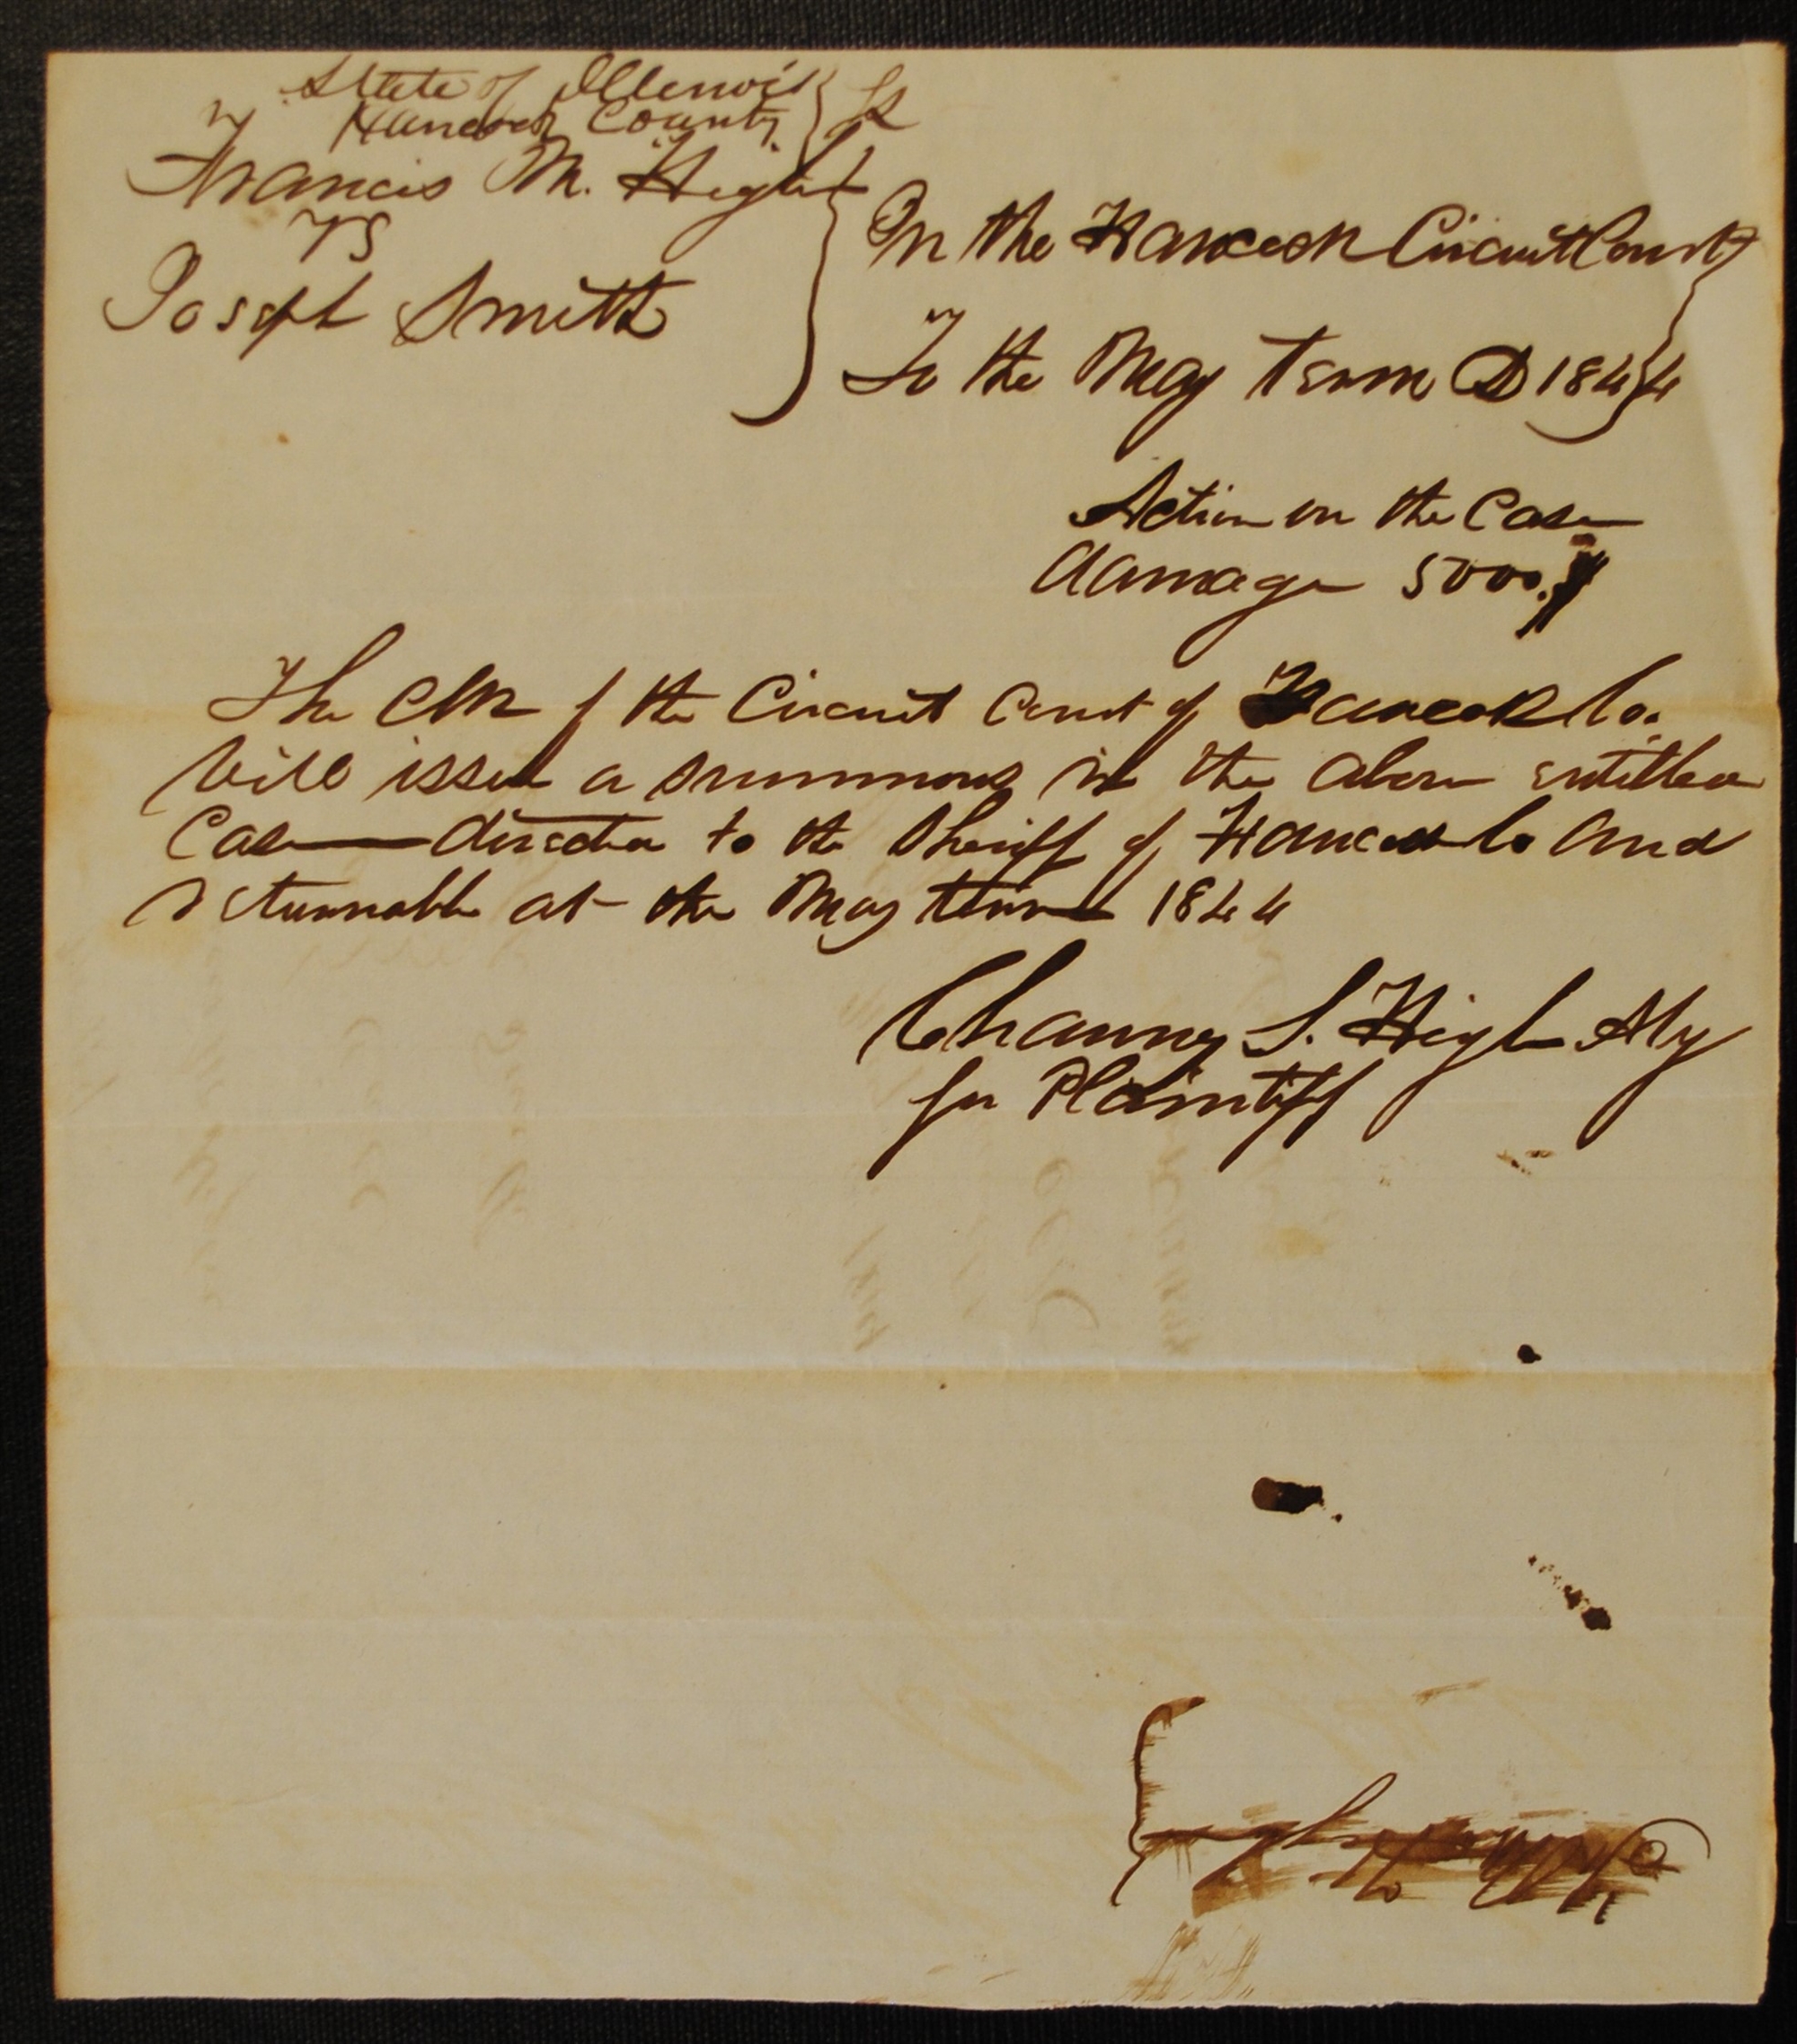 State of Illinois
Hancock County
Francis M. Higbee
vs
Joseph Smith
In the Hancock Circuit Court
To the May Term AD 1844
Action on the Case
damage 5000.
The Clk of the Circuit Court of Hancock Co.
Will issue a summons in the above entitled
Case directed to the Sheriff of Hancock Co and
returnable at the May term 1844
Chauncy L. Higbee Atty
for Plaintiff